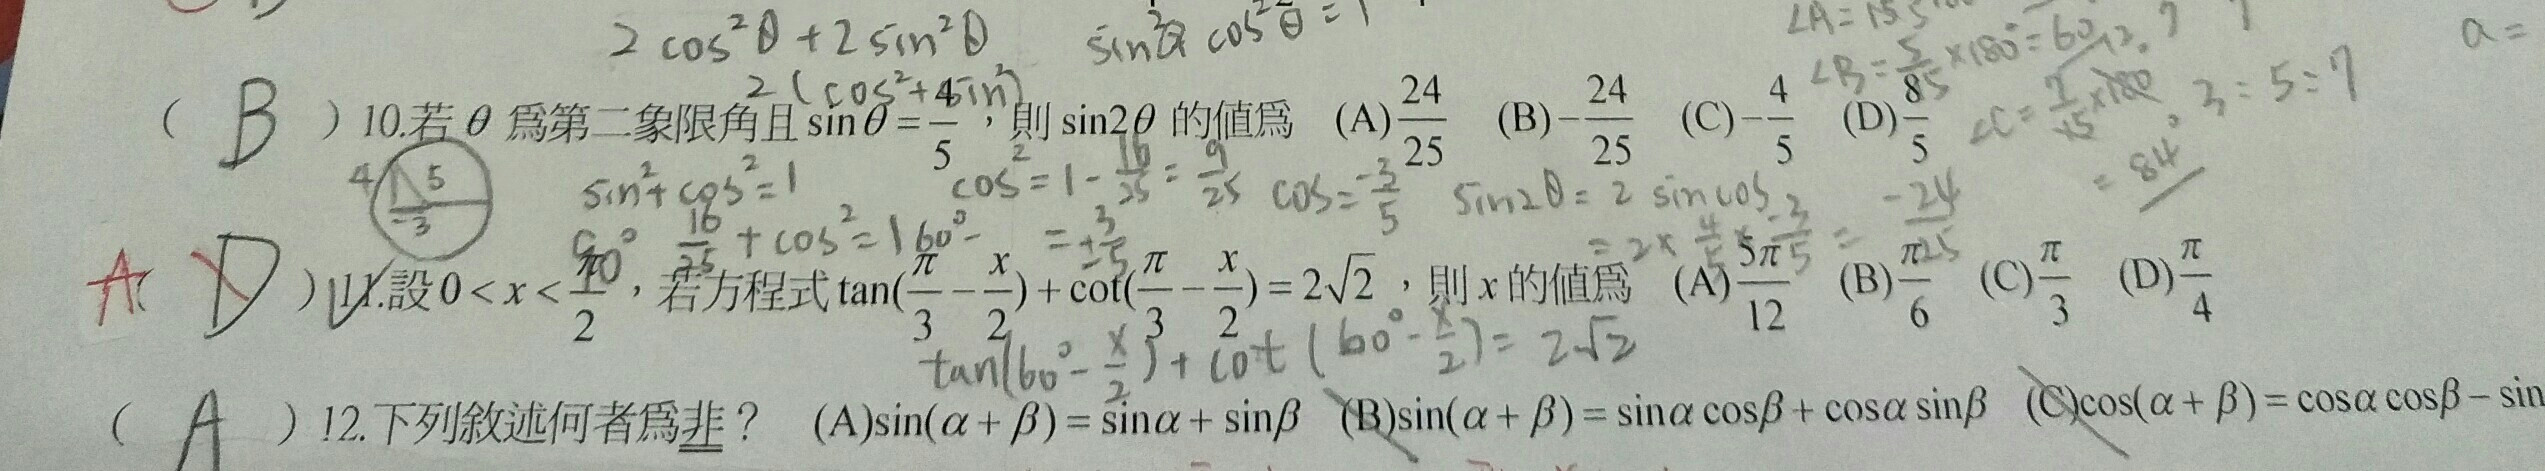 2 cos²θ + 2 sin²θ sin²θ cos²θ = 1
2 (cos² + sin²)
∠B = 5/15 × 180 = 60
a =
3 : 5 : 7
= 84°
( B ) 10.若 θ 為第二象限角且 sinθ = 4/5 ，則 sin2θ 的值為 (A) 24/25 (B) − 24/25 (C) − 4/5 (D) 8/5
4 5 -3
sin² + cos² = 1 cos² = 1 - 16/25 = 9/25 cos = -3/5 sin2θ = 2 sin cos
16/25 + cos² = 1 = ± 3/5 = 2 × 4/5 × -3/5 = -24/25
60° -
A ( D ) 11.設 0 < x < π/2 ，若方程式 tan(π/3 − x/2) + cot(π/3 − x/2) = 2√2 ，則 x 的值為 (A) 5π/12 (B) π/6 (C) π/3 (D) π/4
tan(60° - x/2) + cot (60° - x/2) = 2√2
( A ) 12.下列敘述何者為非？ (A)sin(α + β) = sinα + sinβ (B)sin(α + β) = sinα cosβ + cosα sinβ (C)cos(α + β) = cosα cosβ − sin